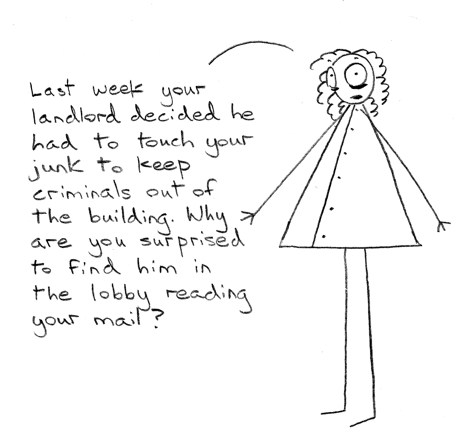 Last week your
landlord decided he
had to touch your
junk to keep
criminals out of
the building. Why
are you surprised
to find him in
the lobby reading
your mail?